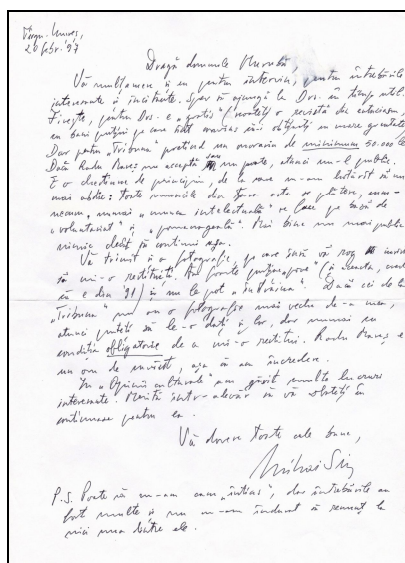 Târgu-Mureș,
20 febr. '97
Dragă domnule Hurubă,
Vă mulțumesc și eu pentru interviu, pentru întrebările
interesante și incitante. Sper să ajungă la Dvs. în timp util.
Firește, pentru Dvs. e „gratis” (scoateți o revistă din entuziasm,
cu banii puțini pe care
Dar pentru „Tribuna” pretind un onorariu de minimum 50.000 lei.
Dacă Radu Mareș nu acceptă sau nu poate, atunci nu-l public.
E o chestiune de principiu, de la care m-am hotărât să nu
mai abdic: toate muncile din țara asta se plătesc,
numai „munca intelectuală” se face pe bază de
„voluntariat” și „pomenageală”. Mai bine nu mai public
nimic decât să continui așa.
Vă trimit și o fotografie, pe care însă vă rog
să mi-o restituiți. Am foarte puține „poze” (și aceasta,
cu e din '91) și nu le pot „înstrăina”. Dacă cei de la
„Tribuna” nu au o fotografie mai veche de-a mea,
atunci puteți să le-o dați și lor, dar numai cu
condiția obligatorie de a mi-o restitui. Radu Mareș e
un om de încredere.
În „Opinii culturale” am găsit multe lucruri
interesante. Merită într-adevăr să vă zbateți în
continuare pentru ea.
Vă doresc toate cele bune,
Mihai Sin
P.S. Poate că m-am cam „întins”, dar întrebările au
fost multe și nu m-am îndurat să renunț la
nici una dintre ele.